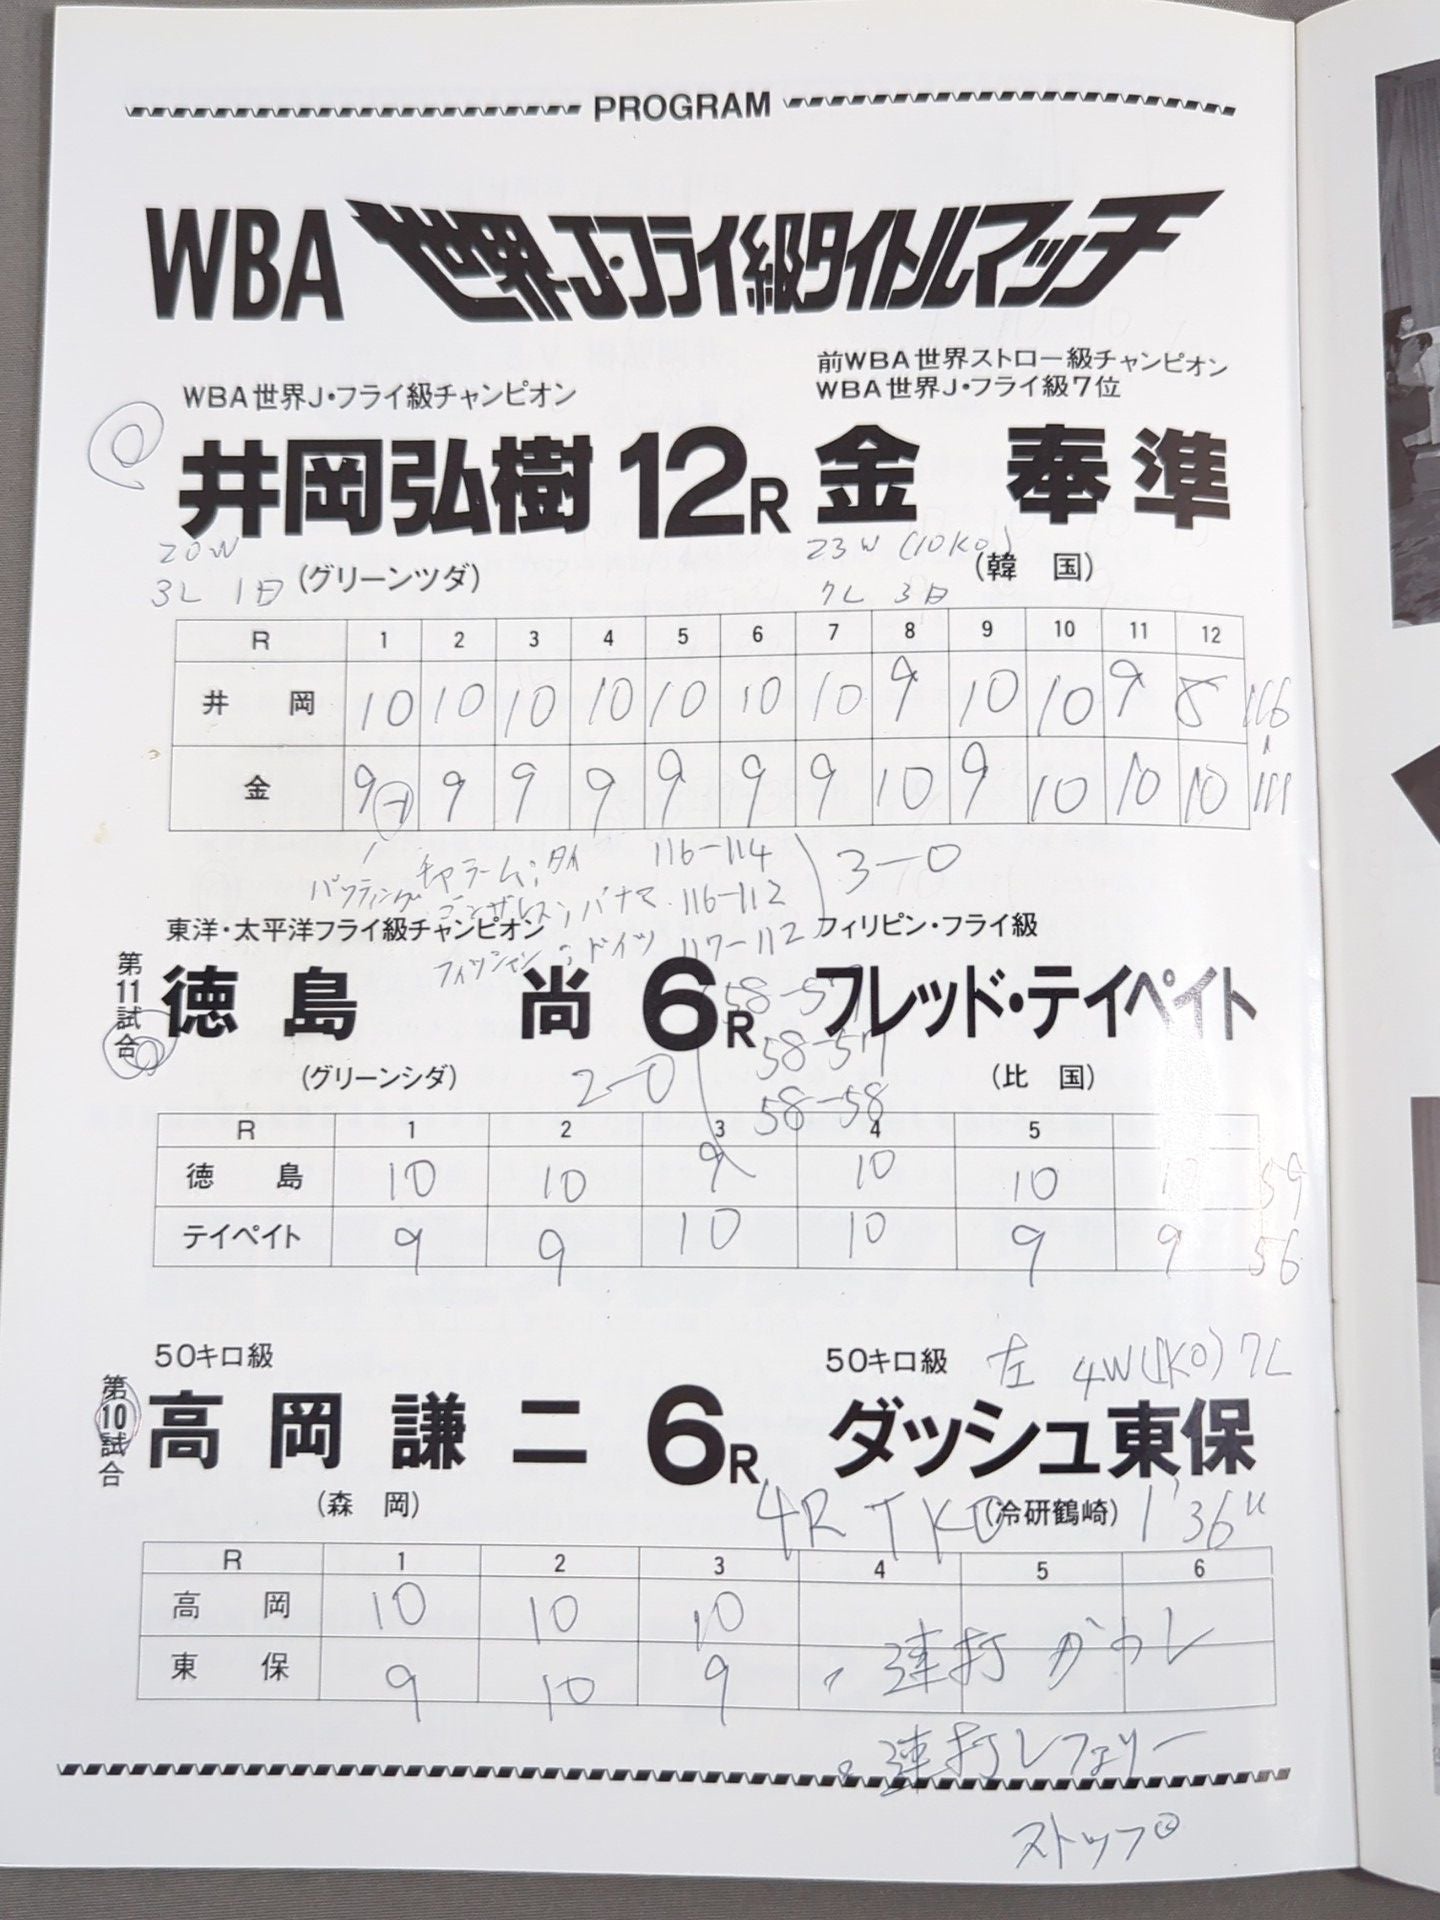 PROGRAM
WBA 世界J・フライ級タイトルマッチ
WBA世界J・フライ級チャンピオン
前WBA世界ストロー級チャンピオン
WBA世界J・フライ級7位
井岡弘樹 12R 金 奉 準
20W
3L 1日
(グリーンツダ)
23W (10KO)
7L 3日
(韓 国)
R 1 2 3 4 5 6 7 8 9 10 11 12
井 岡 10 10 10 10 10 10 10 9 10 10 9 8 116
金 9 9 9 9 9 9 9 10 9 10 10 10 111
バッティング
チャラーム;タイ 116-114
ゴンザレス;パナマ 116-112
フィッシャン;ドイツ 117-112
3-0
東洋・太平洋フライ級チャンピオン
フィリピン・フライ級
第11試合
徳 島 尚 6R フレッド・テイペイト
(グリーンシダ)
(比 国)
2-0
58-57
58-57
58-58
R 1 2 3 4 5
徳 島 10 10 9 10 10 10 59
テイペイト 9 9 10 10 9 9 56
50キロ級
50キロ級
左 4W(1KO) 7L
第10試合
高 岡 謙 二 6R ダッシュ東保
(森 岡)
(冷研鶴崎)
4R TKO 1'36"
R 1 2 3 4 5 6
高 岡 10 10 10
東 保 9 10 9
連打かわし
連打レフェリー
ストップ